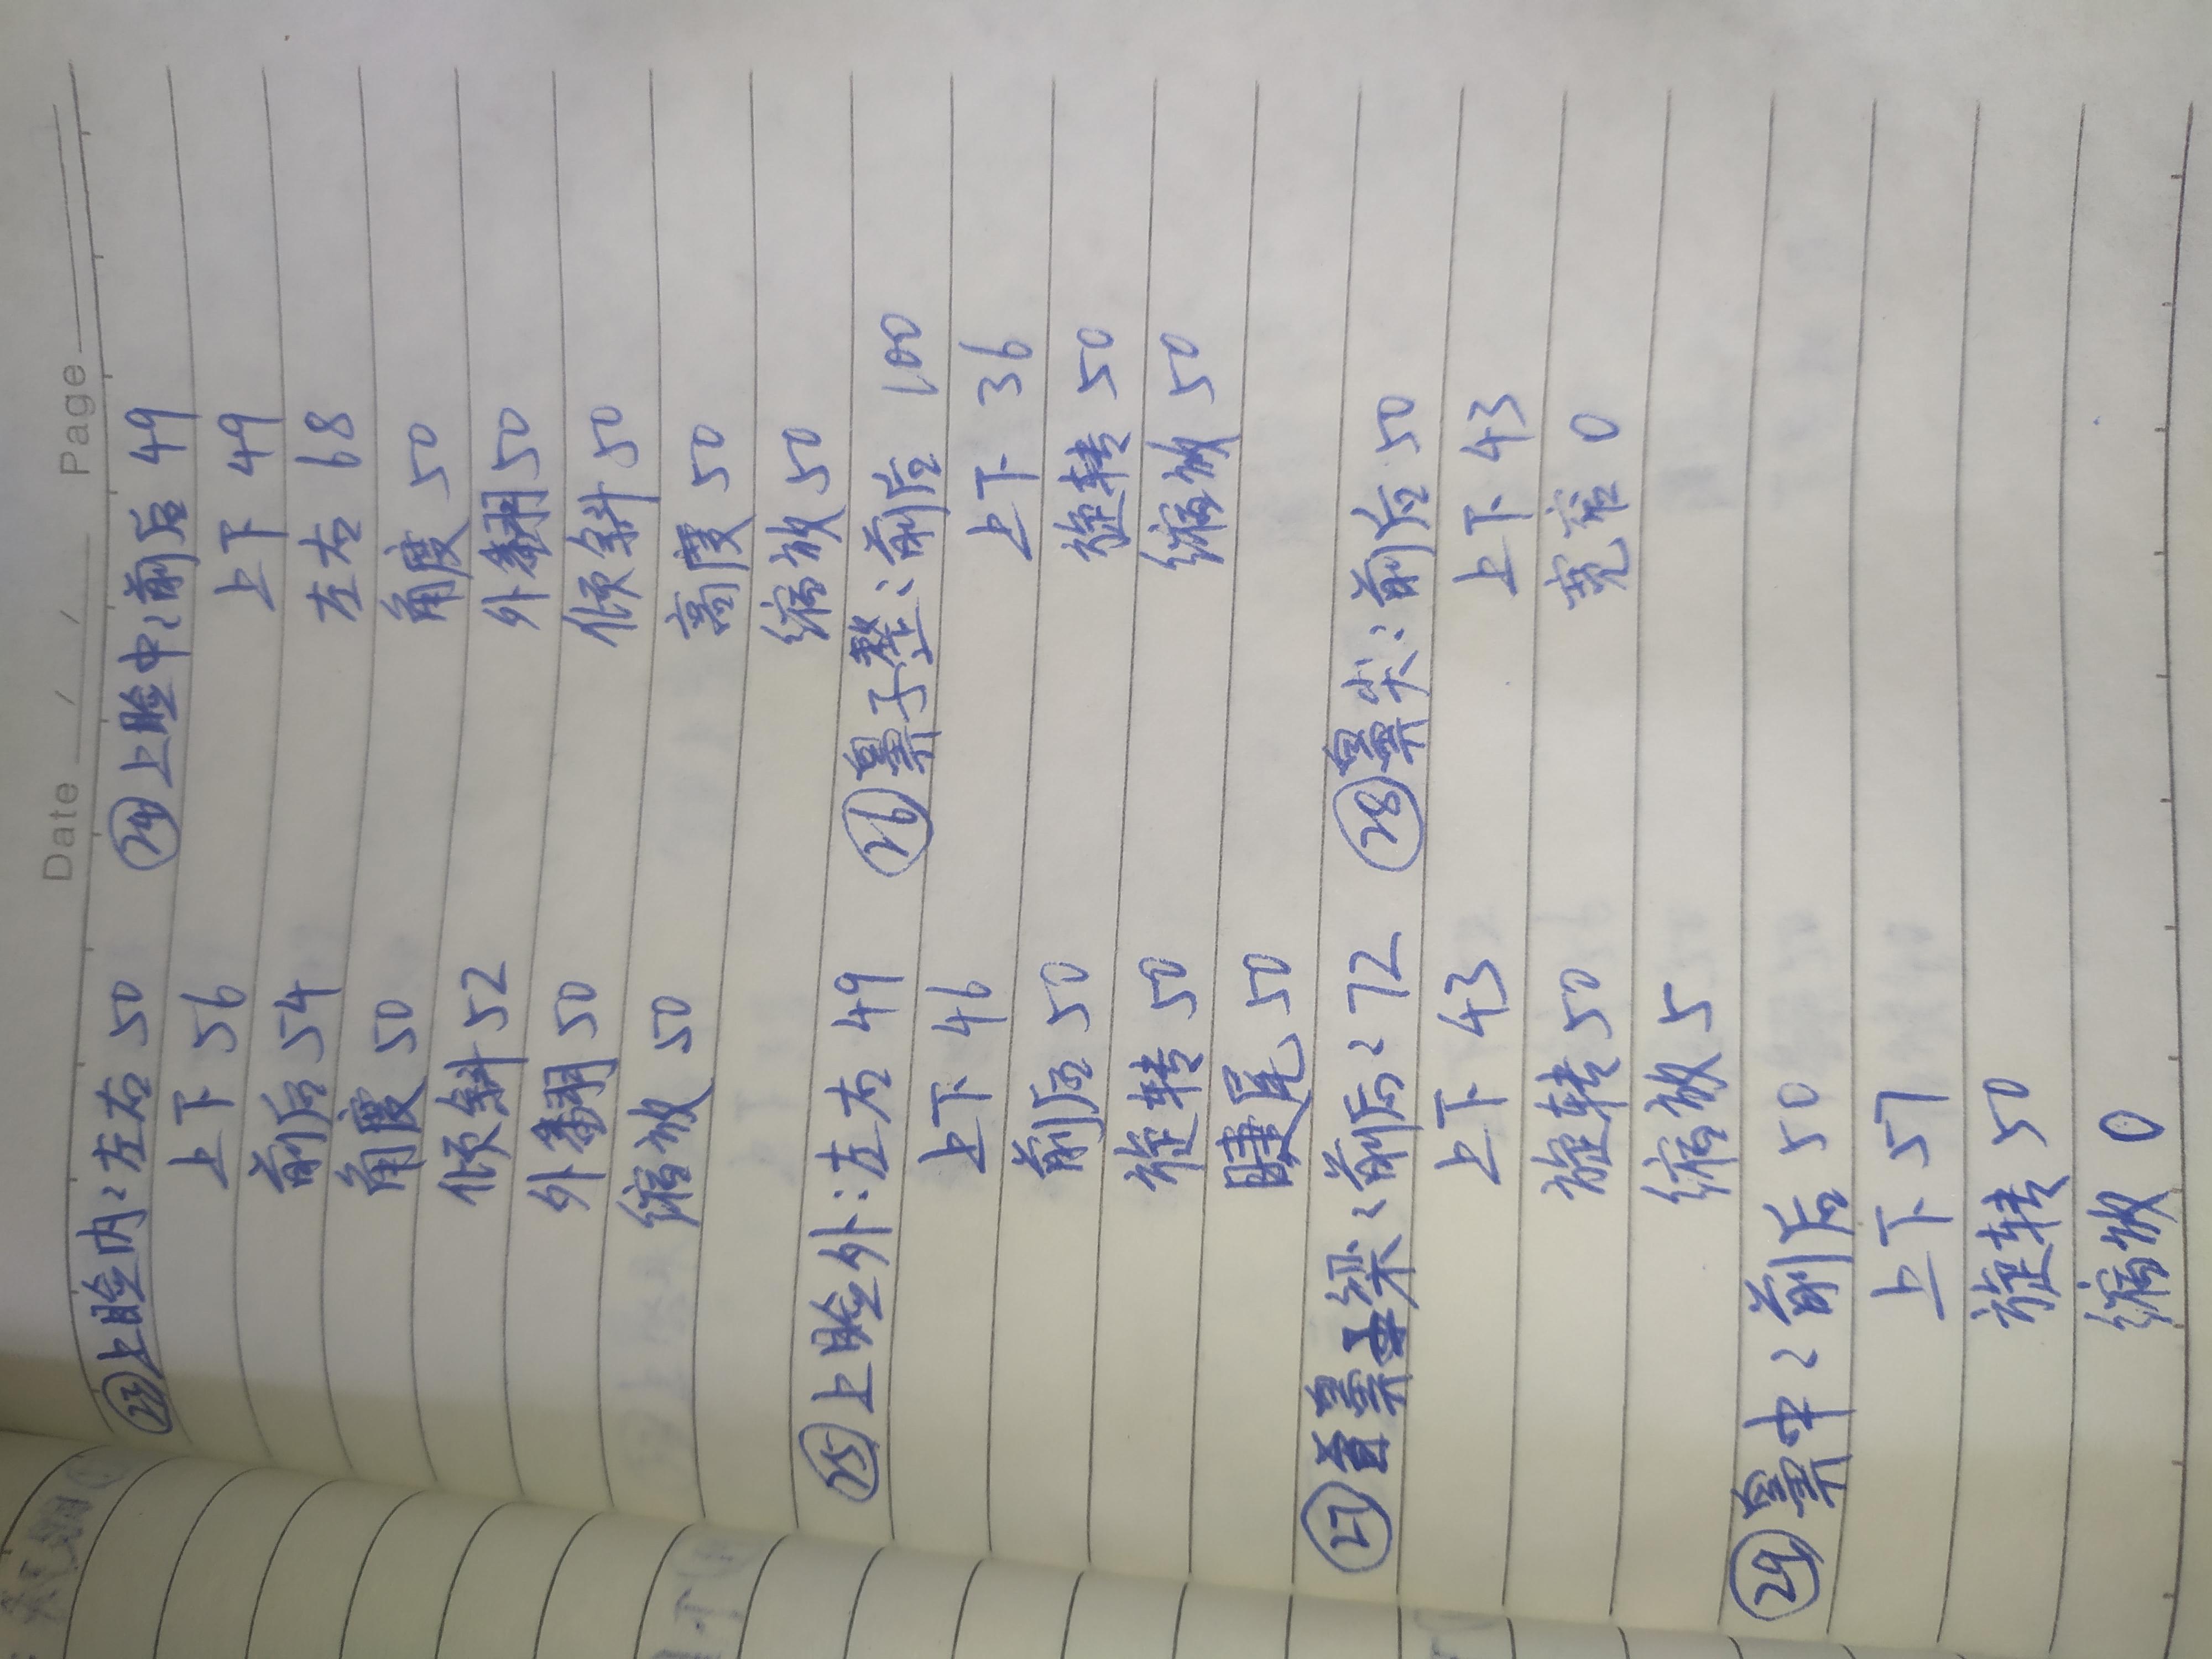 Date / / Page
㉓上睑内:左右 50 ㉔上睑中:前后 49
上下 56 上下 49
前后 54 左右 68
角度 50 角度 50
倾斜 52 外翻 50
外翻 50 倾斜 50
缩放 50 高度 50
缩放 50
㉕上睑外:左右 49 ㉖鼻子整:前后 100
上下 46 上下 36
前后 50 旋转 50
旋转 50 缩放 50
睫尾 50
㉗鼻梁:前后:72 ㉘鼻尖:前后 50
上下 43 上下 43
旋转 50 宽窄 0
缩放 5
㉙鼻中:前后 50
上下 57
旋转 50
缩放 0